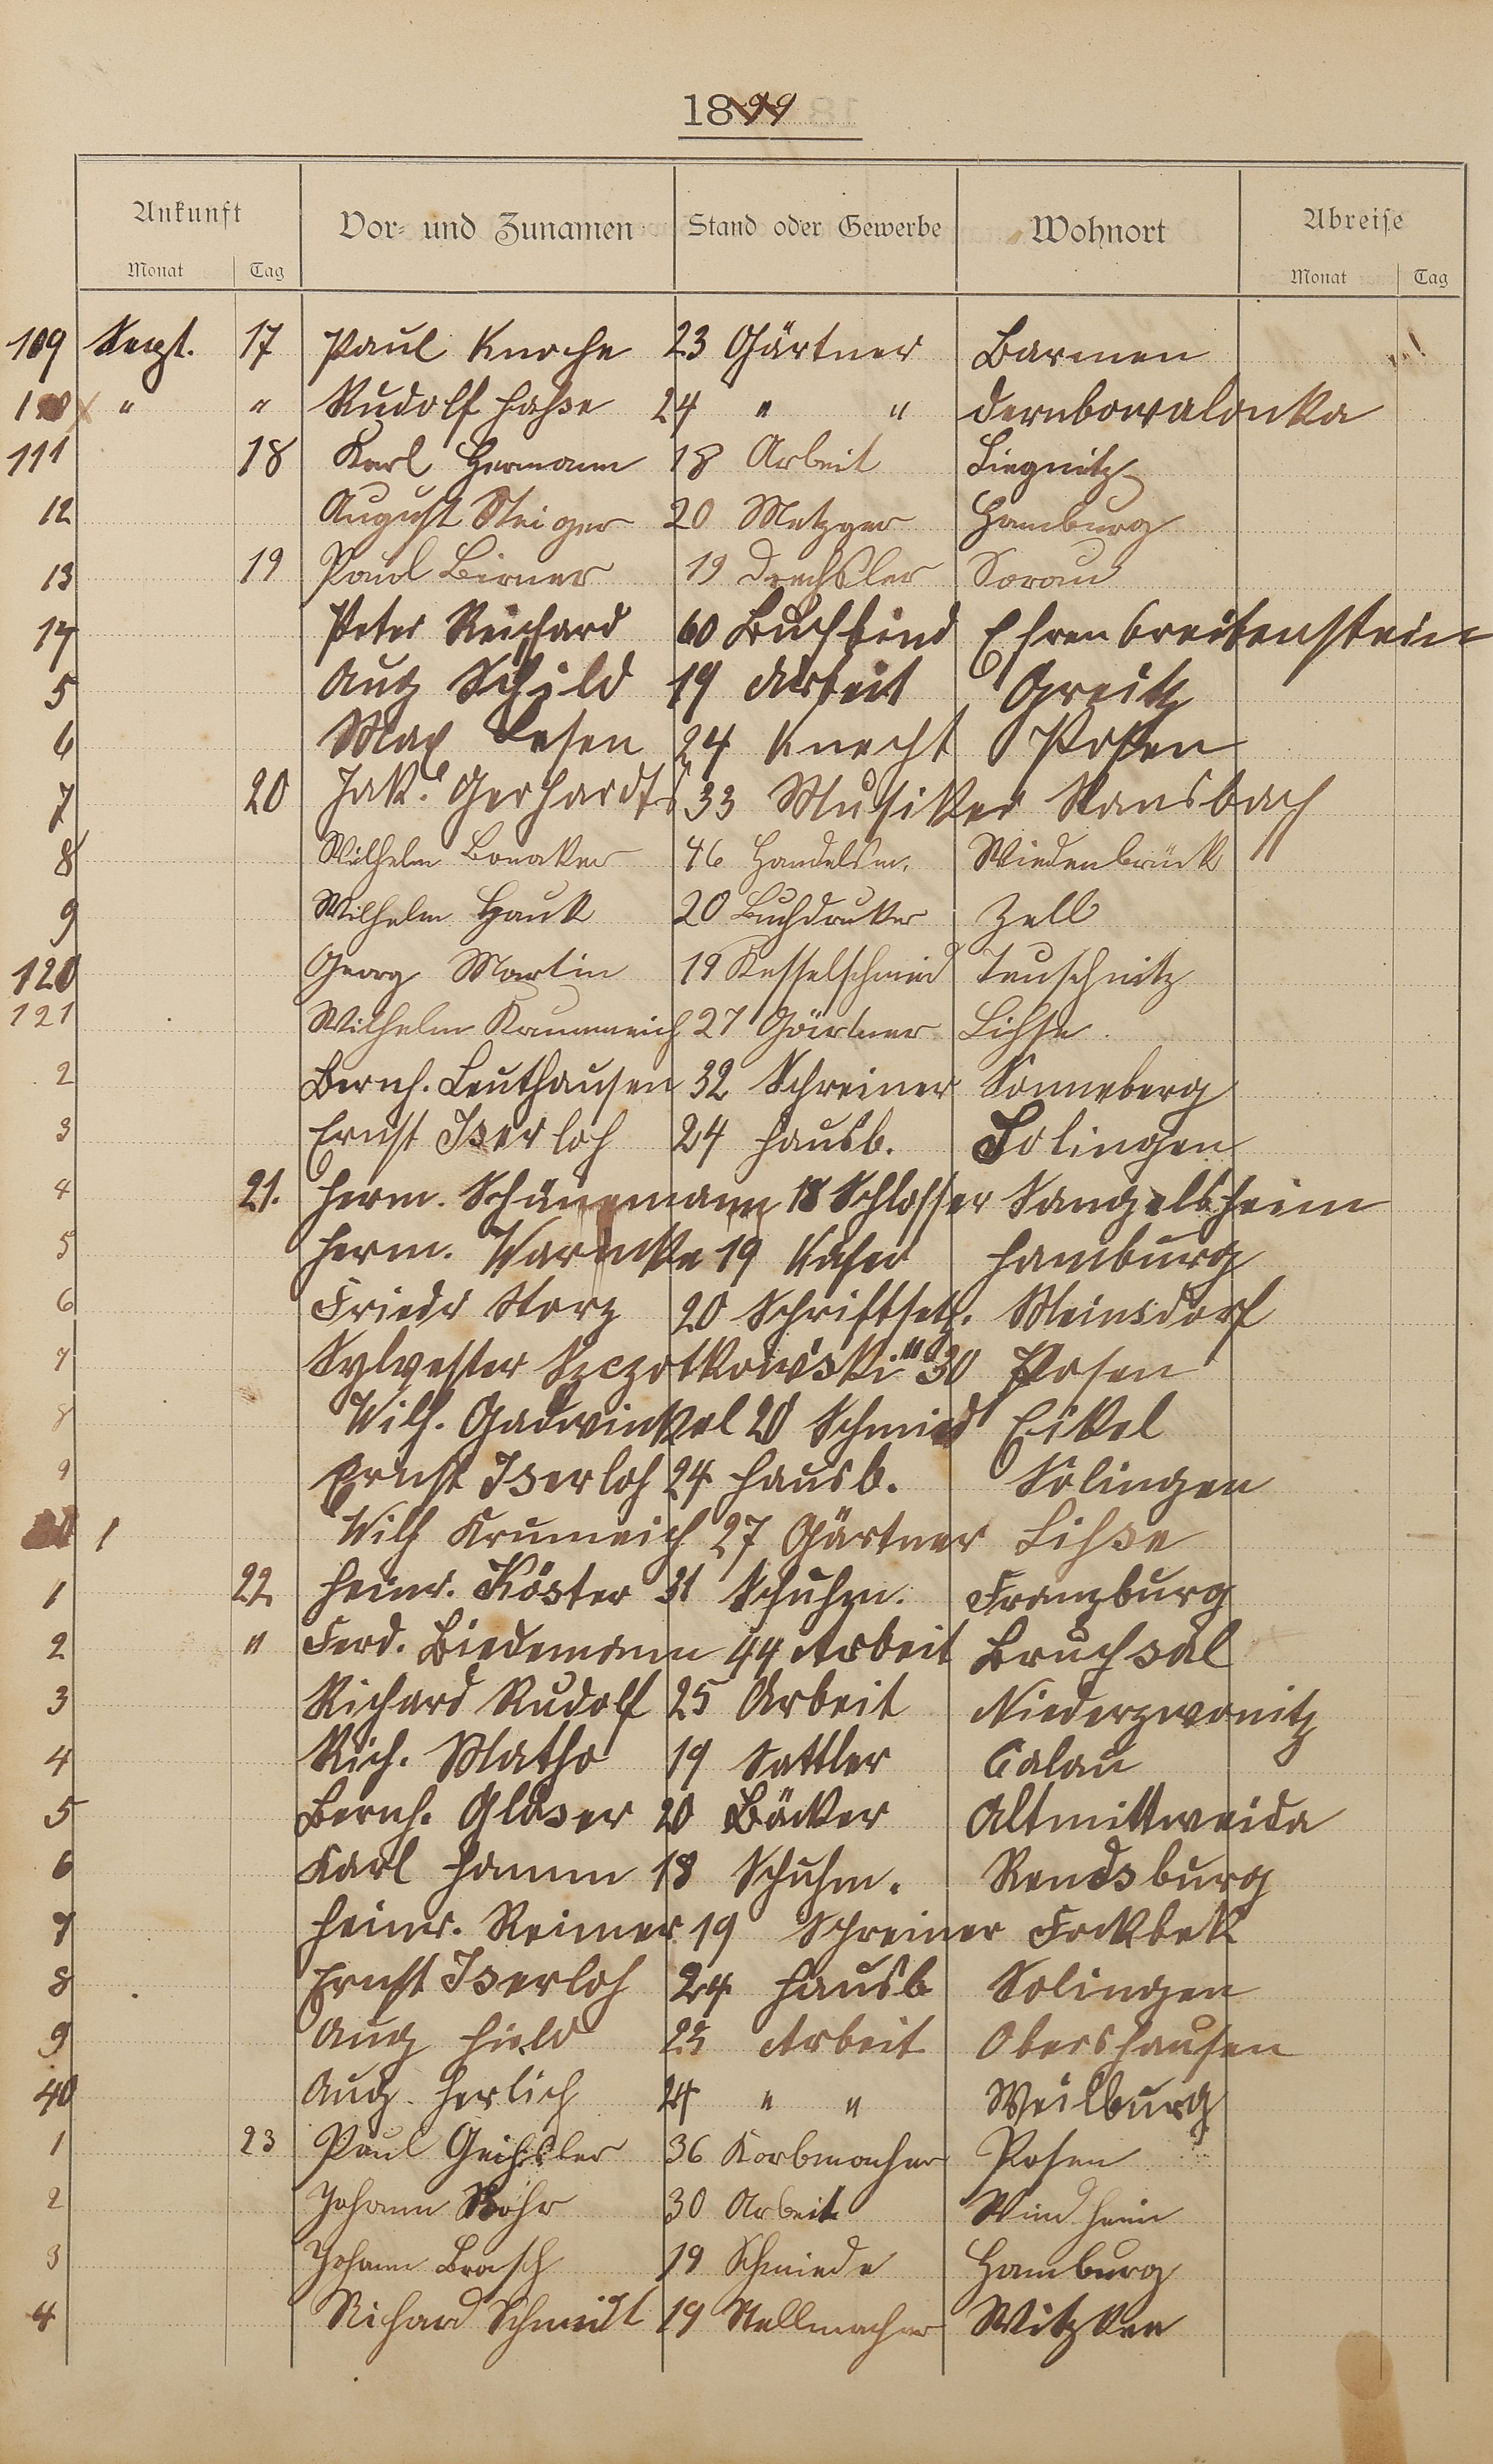 1899
Ankunft Vor- und Zunamen Stand oder Gewerbe Wohnort Abreise
Monat Tag Monat Tag
109 Sept. 17 Paul Knoche 23 Gärtner Barmen
110 " " Rudolf Hasse 24 " " Dernbowalonka
111 18 Karl Hermann 18 Arbeit Liegnitz
12 August Steiger 20 Metzger Hamburg
13 19 Paul Birner 19 Drechsler Sorau
14 Peter Reichard 60 Buchbind Ehrenbreitenstein
5 Aug Schild 19 Arbeit Greitz
6 Max Lesen 24 Knecht Posen
7 20 Jak. Gerhardts 33 Musiker Ransbach
8 Wilhelm Bonaker 46 Handelsm. Wiedenbrück
9 Wilhelm Hauk 20 Buchdruker Zell
120 Georg Martin 19 Kesselschmied Teuschnitz
121 Wilhelm Krummeich 27 Gärtner Lihse
2 Bernh. Leuthausen 32 Schreiner Sonneberg
3 Ernst Iserloh 24 Hausb. Solingen
4 21. Herm. Schünemann 18 Schlosser Langelsheim
5 Herm. Warncke 19 Käser Hamburg
6 Friedr Storz 20 Schriftsetz. Meinsdorf
7 Sylvester Szczotkowski " 30 Posen
8 Wilh. Gadwinkel 20 Schmied Eikel
9 Ernst Iserloh 24 Hausb. Solingen
1 Wilh Krumeich 27 Gärtner Lihse
1 22 Heinr. Köster 31 Schuhm. Franzburg
2 " Ferd. Biedemann 44 Arbeit Bruchsal
3 Richard Rudolf 25 Arbeit Niederzwonitz
4 Rich. Matho 19 Sattler Calau
5 Bernh. Gläser 20 Bäcker Altmittweida
6 Karl Hamm 18 Schuhm. Rendsburg
7 Heinr. Reimer 19 Schreiner Fockbek
8 Ernst Iserloh 24 Hausb Solingen
9 Aug Hield 25 Arbeit Obershausen
40 Aug. Herlich 24 " " Weilburg
1 23 Paul Geissler 36 Korbmacher Posen
2 Johann Röhr 30 Arbeit Windheim
3 Johann Brasch 19 Schmiede Hamburg
4 Richard Schmidt 19 Stellmacher Witzken